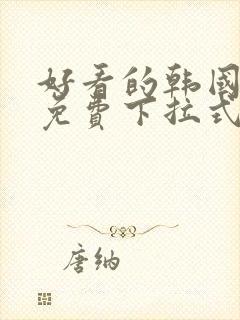 好看的韩国
免費下拉式
唐纳